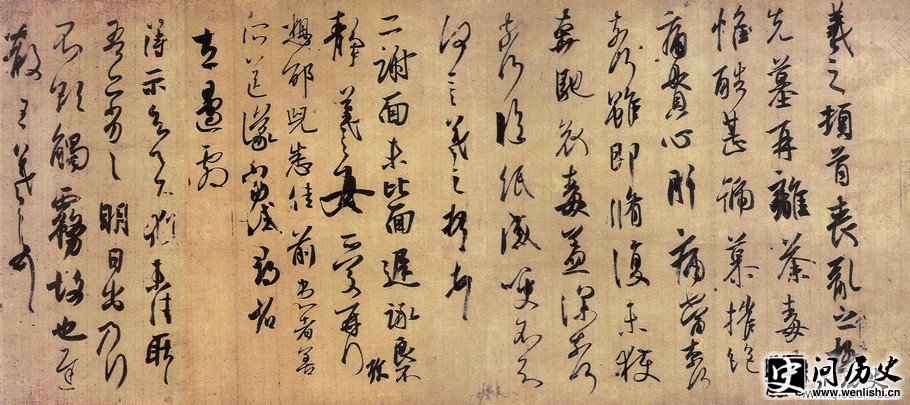 羲之頓首喪亂之極
先墓再離荼毒追
惟酷甚號慕摧絕
痛貫心肝痛當奈何
奈何雖即脩復未獲
奔馳哀毒益深奈何
奈何臨紙感哽不知
何言羲之頓首頓首
二謝面未比面遲詠良不
靜羲之女愛再拜
想邵兒悉佳前患者善
所送議當試尋省
左邊劇
得示知足下猶未佳耿耿
吾亦劣劣明日出乃行
不欲觸霧故也遲
散王羲之頓首
史 问历史
www.wenlishi.cn